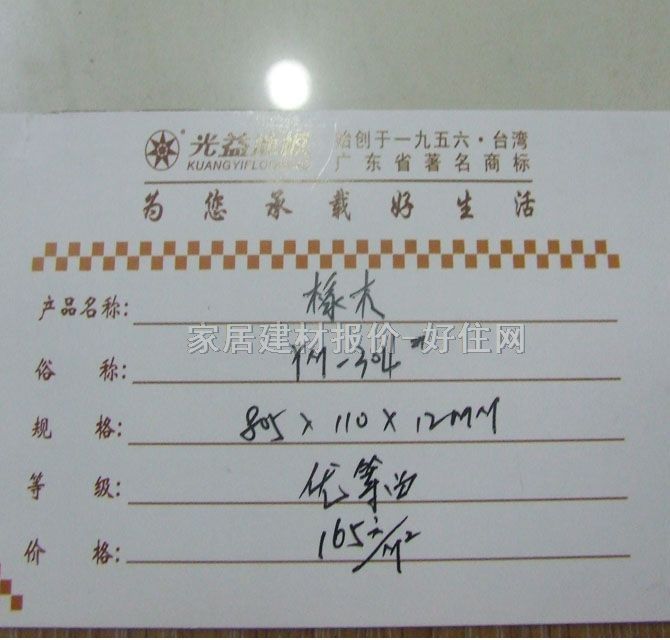 光益地板 始创于一九五六·台湾
KUANGYIFLOORING 广东省著名商标
为您承载好生活
产品名称: 橡木
家居建材报价-好住网
俗 称: YM-304#
规 格: 805 x 110 x 12MM
等 级: 优等品
价 格: 165元/M²